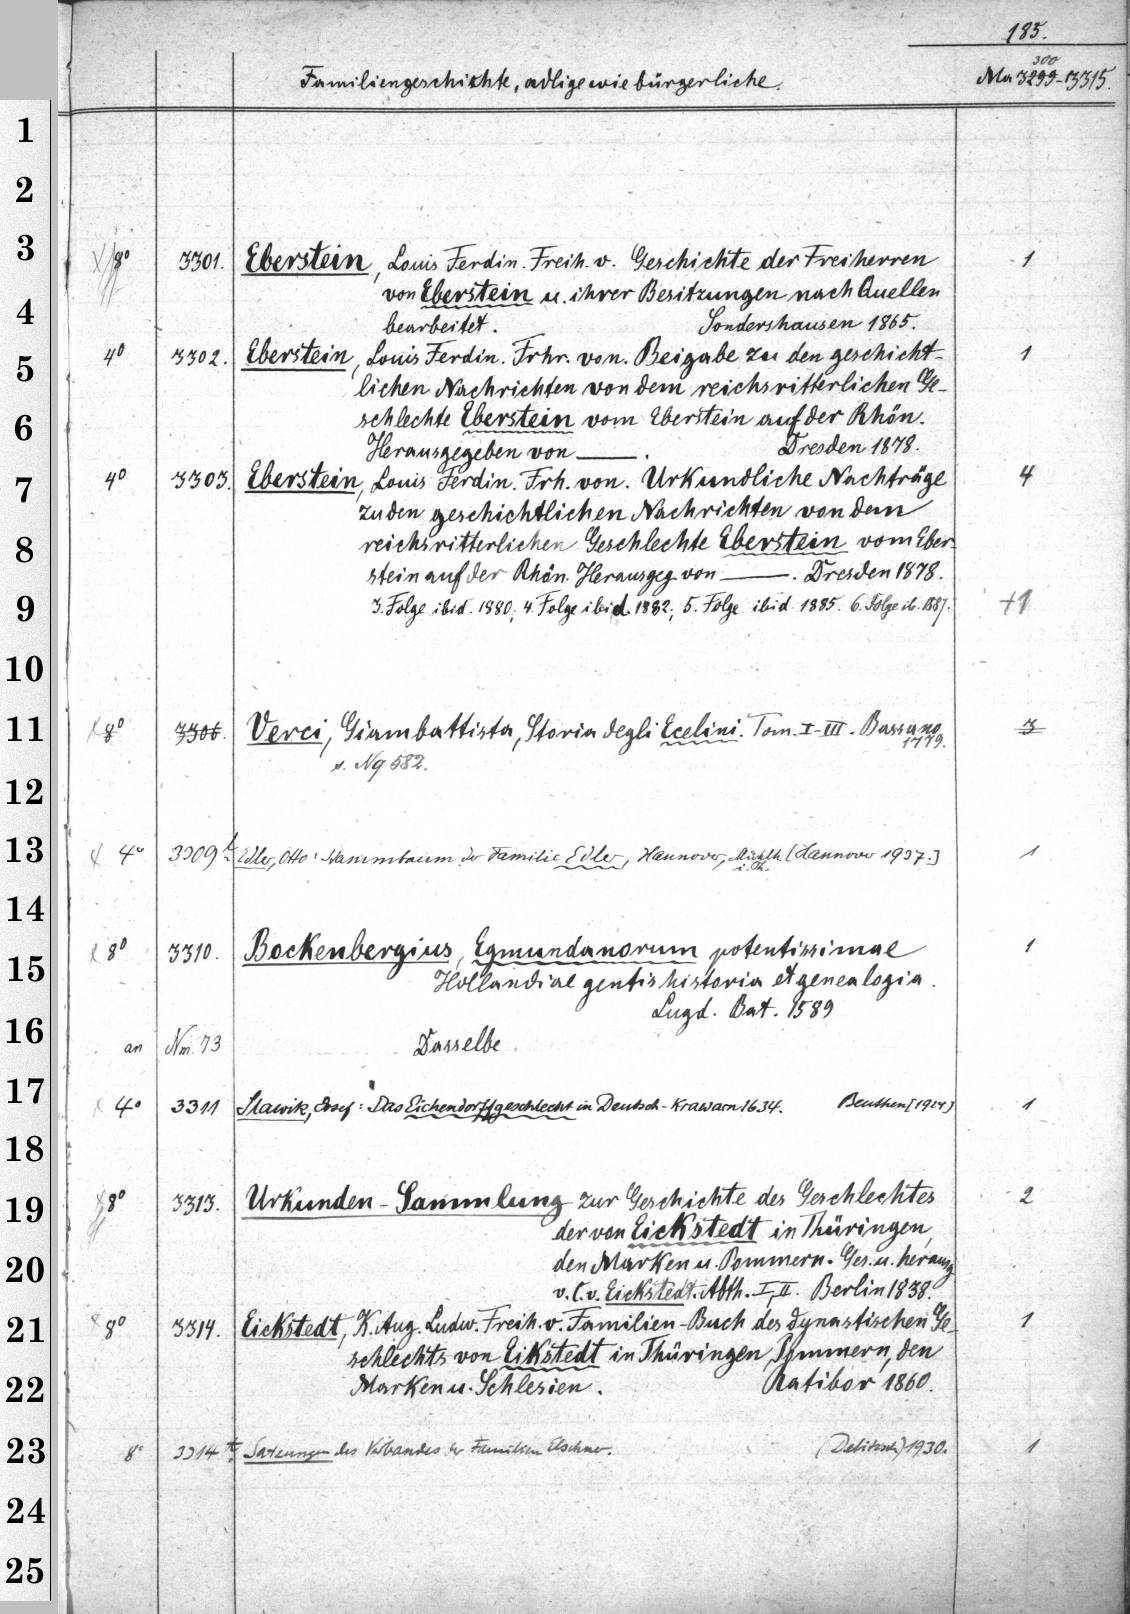 185.
300
Familiengeschichte, adlige wie bürgerliche.
Ma 3299-3315.
1
2
3
8° 3301. Eberstein, Louis Ferdin. Freih. v. Geschichte der Freiherren 1
von Eberstein u. ihrer Besitzungen nach Quellen
4
bearbeitet. Sondershausen 1865.
5
4° 3302. Eberstein, Louis Ferdin. Frhr. von. Beigabe zu den geschicht- 1
lichen Nachrichten von dem reichsritterlichen Ge-
6
schlechte Eberstein vom Eberstein auf der Rhön.
Herausgegeben von ——. Dresden 1878.
7
4° 3303. Eberstein, Louis Ferdin. Frh. von. Urkundliche Nachträge 4
zu den geschichtlichen Nachrichten von dem
8
reichsritterlichen Geschlechte Eberstein vom Eber-
stein auf der Rhön. Herausgeg. von ——. Dresden 1878.
9
3. Folge ibid. 1880; 4. Folge ibid. 1882; 5. Folge ibid. 1885. 6. Folge ib. 1887. +1
10
11
8° 3306. Verci, Giambattista, Storia degli Ecelini. Tom. I-III. Bassano 3
1779.
s. Nq 582.
12
13
4° 3309 Edler, Otto: Stammbaum der Familie Edler, Hannover, Mühlh. [Hannover 1937.] 1
i. Th.
14
15
8° 3310. Bockenbergius, Egmundanorum potentissimae 1
Hollandiae gentis historia et genealogia.
Lugd. Bat. 1589
16
an Nm. 73 Dasselbe
17
4° 3311 Slawik, Josef: Das Eichendorffgeschlecht in Deutsch-Krawarn 1634. Beuthen [1924] 1
18
19
8° 3313. Urkunden-Sammlung zur Geschichte des Geschlechtes 2
der von Eickstedt in Thüringen,
20
den Marken u. Pommern. Ges. u. herausg
v. C. v. Eickstedt. Abth. I, II. Berlin 1838.
21
8° 3314. Eickstedt, K. Aug. Ludw. Freih. v. Familien-Buch des dynastischen Ge- 1
schlechts von Eikstedt in Thüringen, Pommern, den
22
Marken u. Schlesien. Ratibor 1860.
23
8° 3314 Satzungen des Verbandes der Familien Elschner. (Delitzsch) 1930. 1
24
25